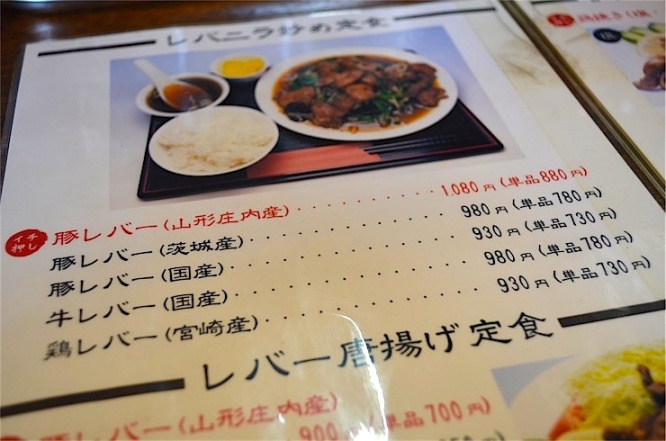 レバニラ炒め定食
イチ押し
豚レバー(山形庄内産)・・・・・・・・・・1,080円(単品880円)
豚レバー(茨城産)・・・・・・・・・・・・980円(単品780円)
豚レバー(国産)・・・・・・・・・・・・・930円(単品730円)
牛レバー(国産)・・・・・・・・・・・・・980円(単品780円)
鶏レバー(宮崎産)・・・・・・・・・・・・930円(単品730円)
レバー唐揚げ定食
豚レバー(山形庄内産)
900円(単品700円)